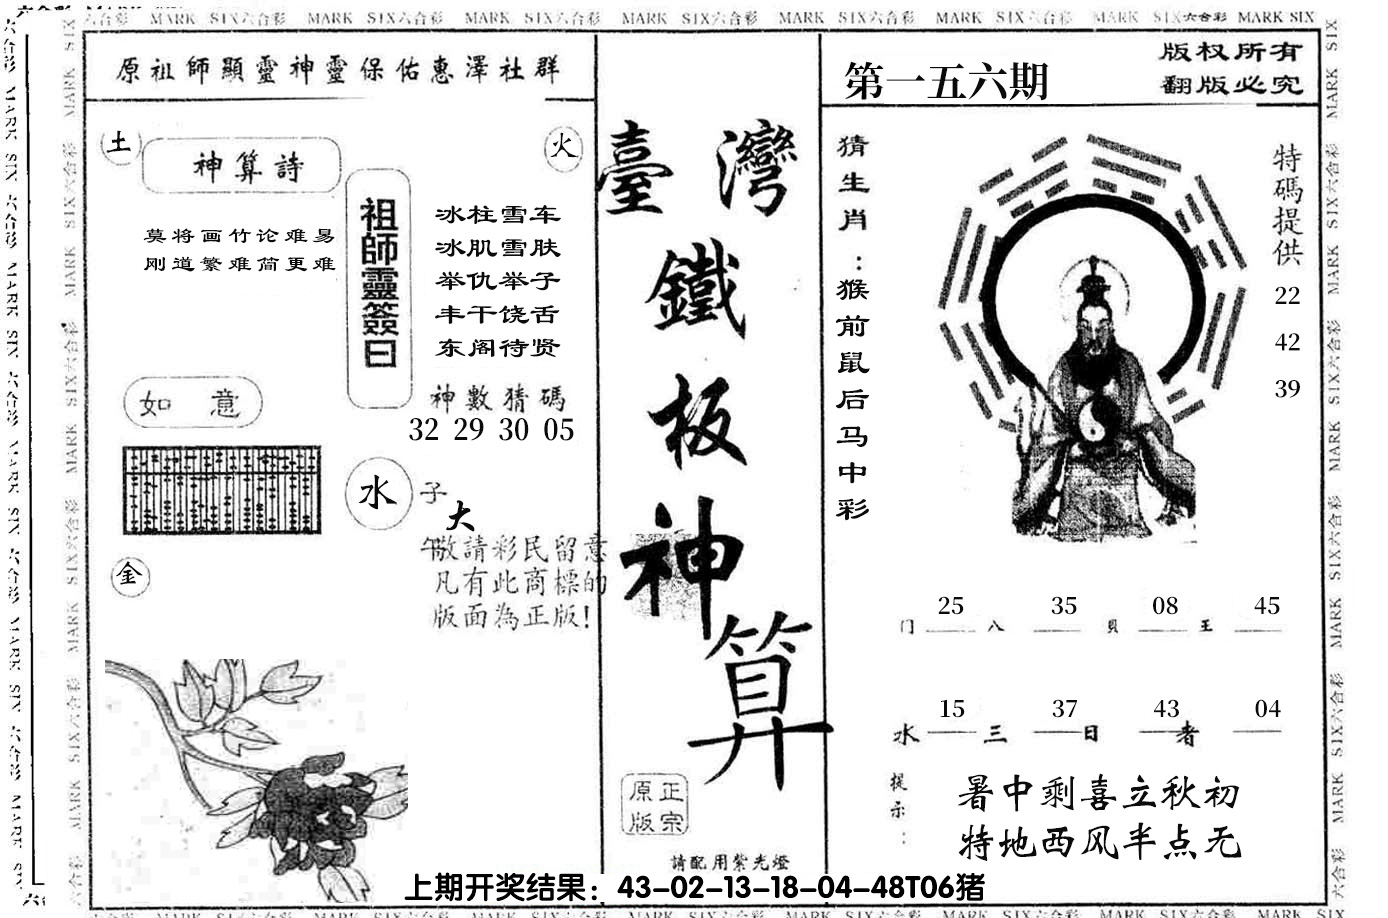 六合彩 MARK SIX六合彩 MARK SIX六合彩 MARK SIX六合彩 MARK SIX六合彩 MARK SIX六合彩 MARK SIX六合彩 MARK SIX六合彩 MARK SIX
原祖師顯靈神靈保佑惠澤社群
土
神算詩
火
莫将画竹论难易
刚道繁难简更难
祖師靈簽曰
冰柱雪车
冰肌雪肤
举仇举子
丰干饶舌
东阁待贤
神數猜碼
32 29 30 05
如 意
水
子
大
午
敬請彩民留意
凡有此商標的
版面為正版!
金
臺灣
鐵
板
神
算
正宗
原版
請配用紫光燈
第一五六期
版权所有
翻版必究
猜生肖:猴前鼠后马中彩
特碼提供
22
42
39
25 35 08 45
门 八 貝 王
15 37 43 04
水 三 日 者
提示:
暑中剩喜立秋初
特地西风半点无
上期开奖结果：43-02-13-18-04-48T06猪